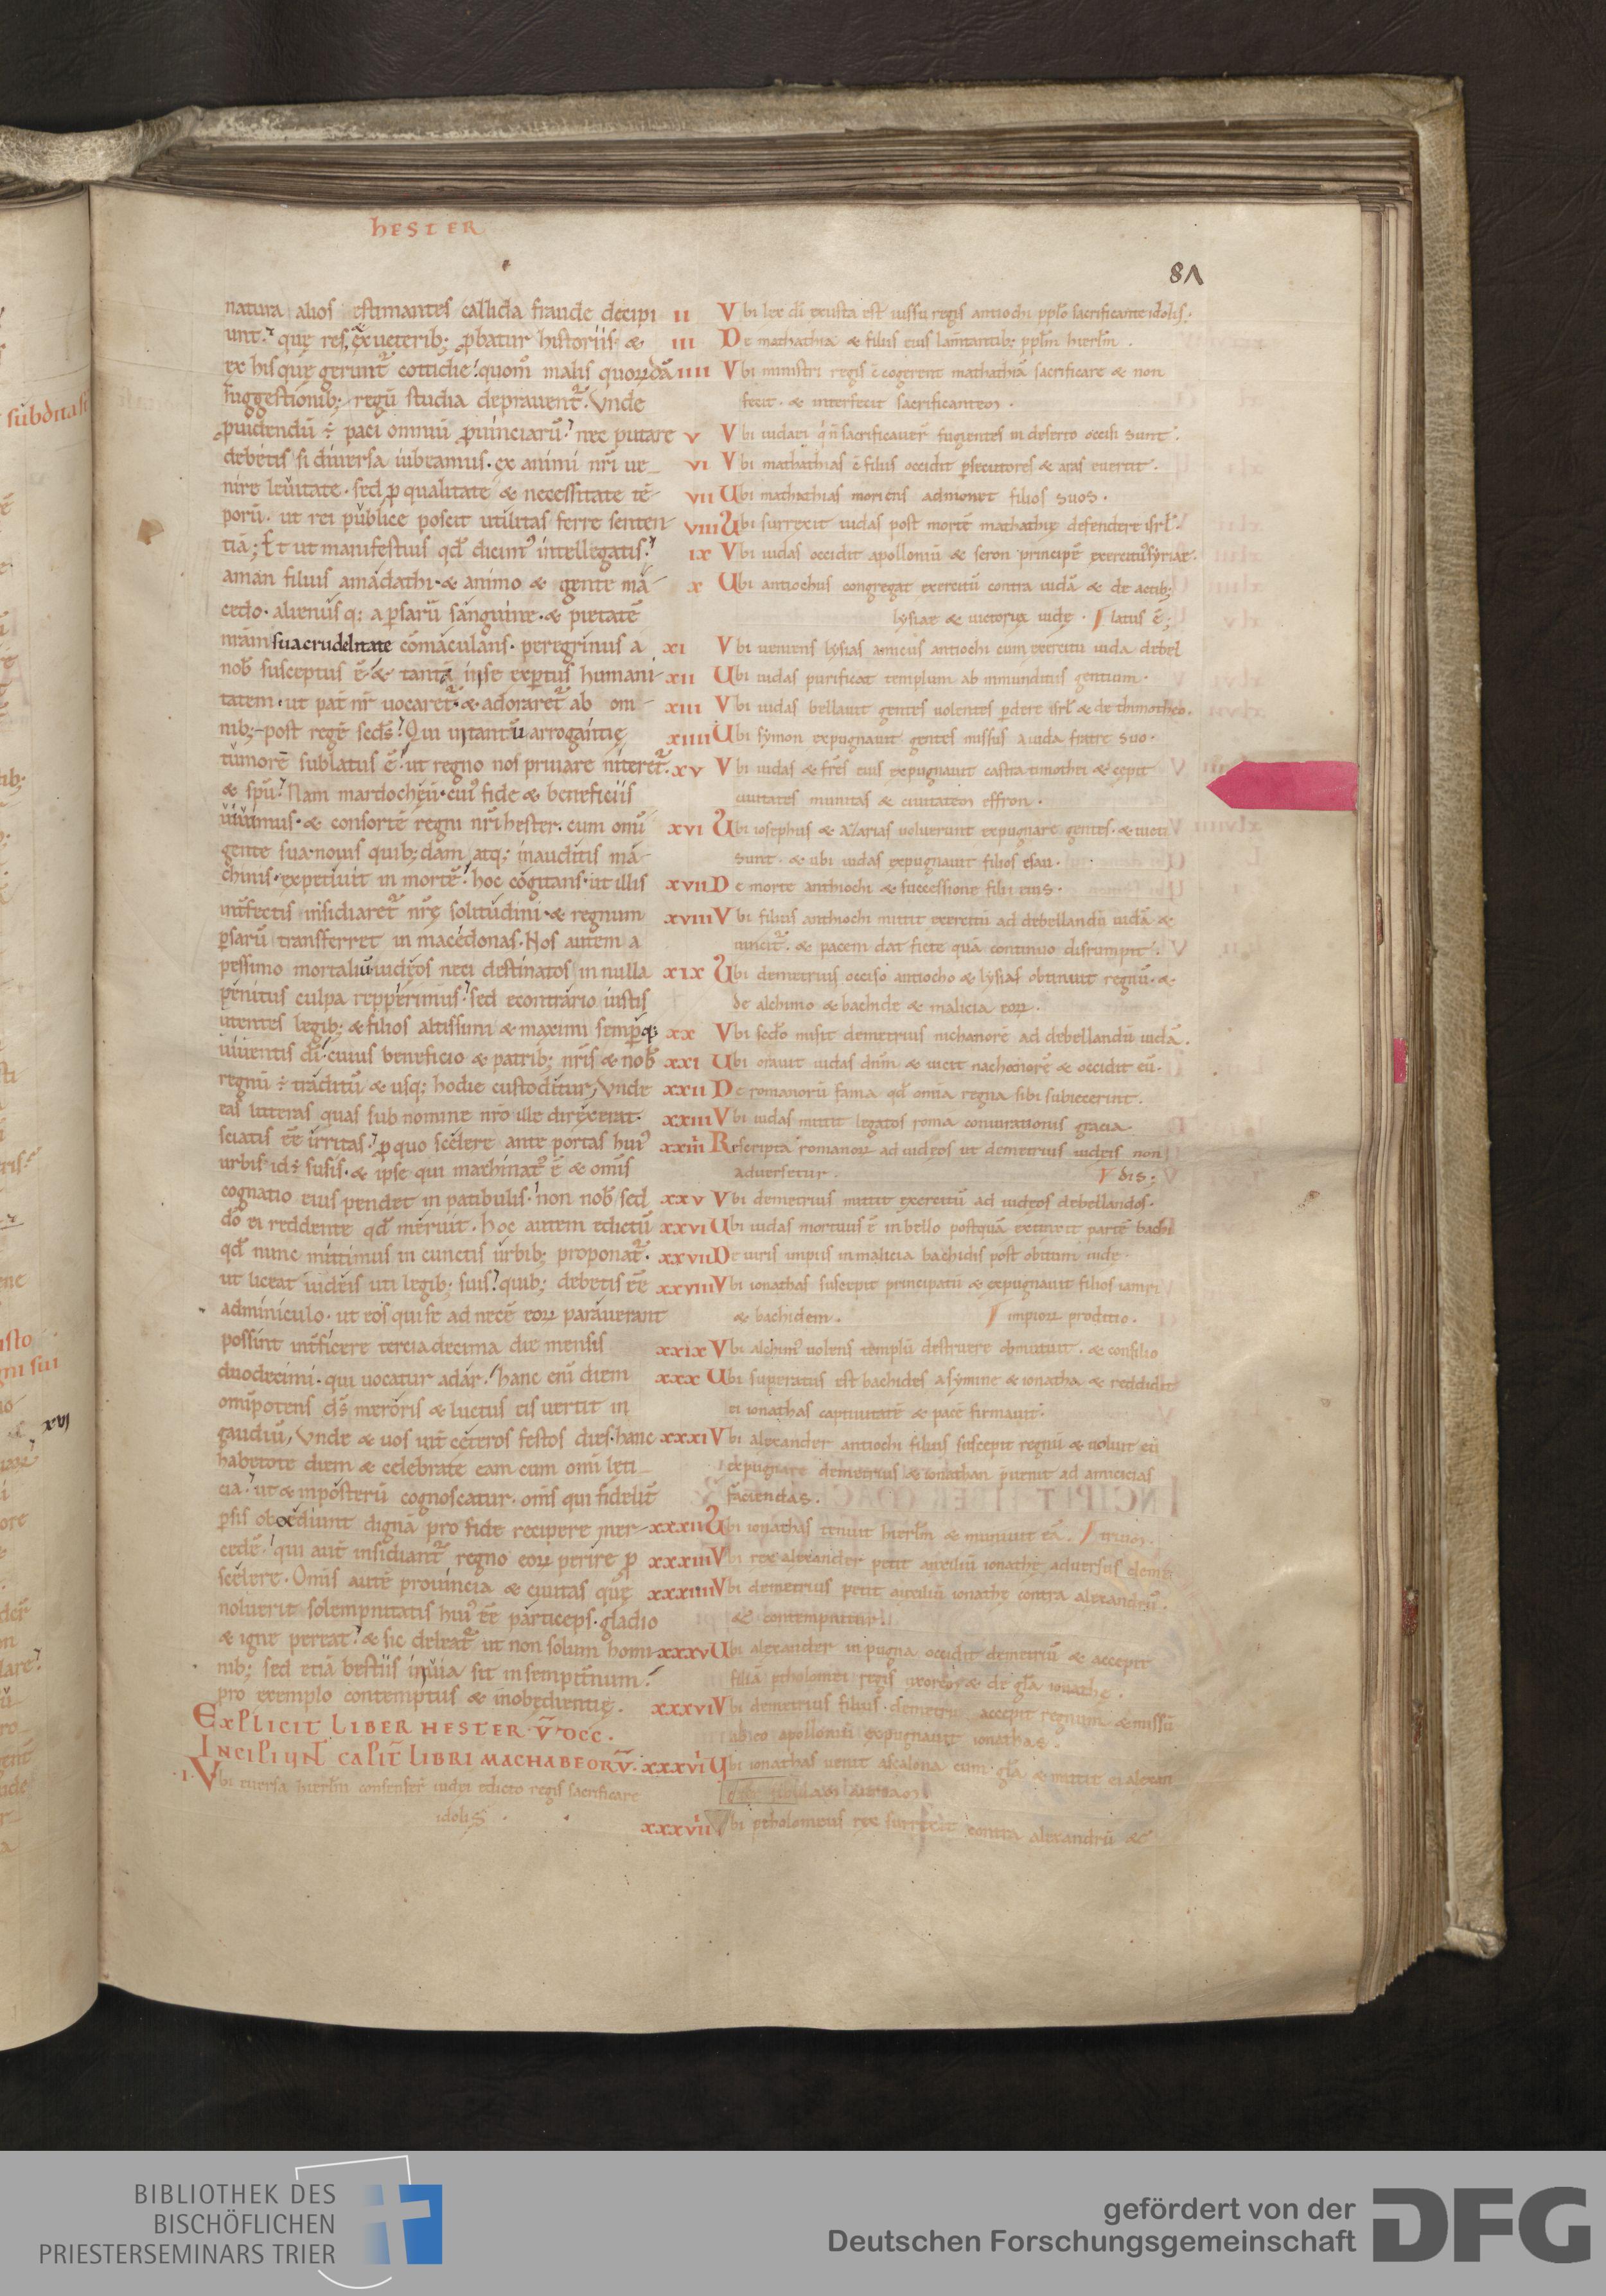 HESTER
87
natura alios estimantes callida fraude decipi
unt. quę res & ex ueterib; ꝓbatur historiis. &
ex his quę gerunt᷑ cottidie. quom̄ malis quorūdā
suggestionib; regū studia deprauent᷑. Vnde
ꝓuidendū ÷ paci omniū ꝓuinciarū. nec putare
debetis si diuersa iubeamus. ex animi nr̄i ue
nire leuitate. sed ꝓ qualitate & necessitate tē
porū. ut rei publice poscit utilitas ferre senten
tiā; Et ut manifestius qd̄ dicim᷒ intellegatis.
aman filius amadathi. & animo & gente ma
cedo. alienusq; a ꝑsarū sanguine. & pietatē
nr̄am sua crudelitate cōmaculans. peregrinus a
nob̄ susceptus ē. & tantā in se exꝑtus humani
tatem. ut pat̄ nr̄ uocaret᷑. & adoraret᷑ ab om
nib; post regē sed̄s. Qui in tantū arrogantię
tumorē sublatus ē. ut regno nos priuare niteret᷑.
& spū. Nam mardochęū. cui᷒ fide & beneficiis
uiuimus. & consortē regni nr̄i hester. cum om̄i
gente sua. nouis quib;dam atq; inauditis ma
chinis. expetiuit in mortē. hoc cogitans. ut illis
int̄fectis insidiaret᷑ nr̄ę solitudini. & regnum
ꝑsarū transferret in macedonas. Nos autem a
pessimo mortaliū iudęos neci destinatos in nulla
penitus culpa repperimus. sed econtrario iustis
utentes legib; & filios altissimi & maximi semperq;
uiuentis dī. cuius beneficio & patrib; nr̄is & nob̄
regnū ÷ traditū & usq; hodie custoditur. Vnde
eas litteras quas sub nomine nr̄o ille direxerat.
sciatis eē irritas. ꝓ quo scelere ante portas hui᷒
urbis id ÷ susis. & ipse qui machinat᷒ ē & om̄is
cognatio eius pendet in patibulis. non nob̄ sed
dō ei reddente qd̄ meruit. hoc autem edictū
qd̄ nunc mittimus in cunctis urbib; proponat᷑.
ut liceat iudeis uti legib; suis. quib; debetis eē
adminiculo. ut eos qui se ad necē eoꝝ parauerant
possint int̄ficere terciadecima die mensis
duodecimi. qui uocatur adar. hanc eni diem
om̄ipotens d̄s meroris & luctus eis uertit in
gaudiū. Vnde & uos int̄ ceteros festos dies. hanc
habetote diem & celebrate eam cum om̄i lęti
cia. ut & inposterū cognoscatur. om̄s qui fidelit̄
ꝑsis obœdiunt dignā pro fide recipere mer
cedē. qui aut̄ insidiant᷑ regno eoꝝ perire ꝓ
scelere. Om̄is autē prouincia & ciuitas quę
noluerit solempnitatis hui᷒ eē particeps. gladio
& igne pereat. & sic deleat᷑ ut non solum homi
nib; sed etiā bestiis inuia sit in sempit̄num.
pro exemplo contemptus & inobędientię.
EXPLICIT LIBER HESTER. V̄. DCC.
INCIPIUNT CAPIT̄ LIBRI MACHABEORV̄.
.I. Vbi euersa hierl̄m consenser̄ iudei edicto regis sacrificare
idolis.
II Vbi lex dī exusta est iussu regis antiochi ppl̄o sacrificante idolis.
III De mathathia & filiis eius lamtantib; pp̄l̄m hierl̄m.
IIII Vbi ministri regis ē cogerent mathathiā sacrificare & non
fecit. & interfecit sacrificantem.
V Vbi iudaei q̇ n̄ sacrificauer̄ fugientes in deserto occisi sunt.
VI Vbi mathathias ē filiis occidit ꝑsecutores & aras euertit.
VII Ubi mathathias moriens admonet filios suos.
VIII Ubi surrexit iudas post mortē mathathię defendere isrl̄.
IX Vbi iudas occidit apolloniū & seron principē exercitus syriae.
X Ubi antiochus congregat exercitū contra iudā & de actib;
lysiae & uictoria iudę. latus ē;
XI Vbi ueniens lysias amicus antiochi cum exercitu iuda debel
XII Ubi iudas purificat templum ab inmunditiis gentium.
XIII Vbi iudas bellauit gentes uolentes ꝑdere isrl̄ & de thimotheo.
XIIII Ubi symon expugnauit gentes missus a iuda fratre suo.
XV Vbi iudas & fr̄es eius expugnauit castra timothei & cepit
ciuitates munitas & ciuitatem effron.
XVI Ubi iosephus & azarias uoluerunt expugnare gentes. & uicti
sunt. & ubi iudas expugnauit filios esau.
XVII De morte anthiochi & successione filii eius.
XVIII Vbi filius anthiochi mittit exercitū ad debellandū iudā &
uincit᷑. & pacem dat ficte quā continuo disrumpit.
XIX Ubi demetrius occiso antiocho & lysias obtinuit regnū. &
de alchimo & bachide & malicia eoꝝ.
XX Vbi sed̄o misit demetrius nichanorē ad debellandū iudā.
XXI Ubi orauit iudas dn̄m & uicit nachonorē & occidit eū.
XXII De romanorū fama qd̄ om̄ia regna sibi subiecerint.
XXIII Vbi iudas mittit legatos roma coniurationis gracia.
XXIIII Rescripta romanoꝝ ad iudęos ut demetrius iudeis non
aduersetur. dis;
XXV Vbi demetrius mittit exercitū ad iudęos debellandos.
XXVI Ubi iudas mortuus ē in bello postquā extinxit partē bachi
XXVII De uiris impiis in malicia bachidis post obitum iude.
XXVIII Vbi ionathas suscepit principatū & expugnauit filios iamri
& bachidem. impioꝝ proditio.
XXIX Vbi alchim᷒ uolens templū destruere obmutuit. & consilio
XXX Ubi superatus est bachides a symone & ionatha & reddidit
ei ionathas captiuitatē & pacē firmauit.
XXXI Vbi alexander antiochi filius suscepit regnū & uoluit eū
expugnare demetrius & ionathan ꝑuenit ad amicicias
faciendas.
XXXII Ubi ionathas tenuit hierl̄m & muniuit eā. trium.
XXXIII Vbi rex alexander petit auxiliū ionathę aduersus deme
XXXIIII Vbi demetrius petit auxiliū ionathę contra alexandrū.
& contempnitur.
XXXV Ubi alexander in pugna occidit demetriū & accepit
filiā ptholomei regis uxorem & de gl̄a ionathę.
XXXVI Vbi demetrius filius demetrii accepit regnum & missū
ab eo apolloniū expugnauit ionathas.
XXXVI Ubi ionathas uenit ascalona cum gl̄a & mittit ei alexan
XXXVII Vbi ptholomeus rex surrexit contra alexandrū &
BIBLIOTHEK DES
BISCHÖFLICHEN
PRIESTERSEMINARS TRIER
gefördert von der
Deutschen Forschungsgemeinschaft
DFG